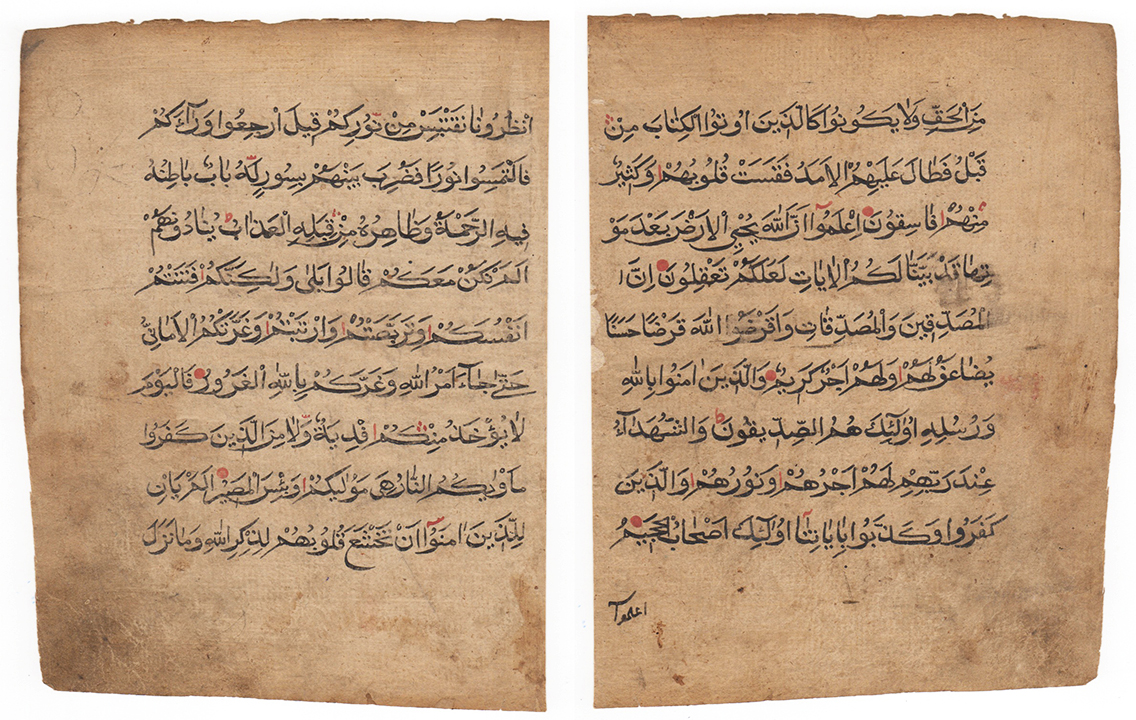 انْظُرُونَا نَقْتَبِسْ مِنْ نُورِكُمْ قِيلَ ارْجِعُوا وَرَآءَكُمْ
فَالْتَمِسُوا نُورًا فَضُرِبَ بَيْنَهُمْ بِسُورٍ لَهُ بَابٌ بَاطِنُهُ
فِيهِ الرَّحْمَةُ وَظَاهِرُهُ مِنْ قِبَلِهِ الْعَذَابُ يُنَادُونَهُمْ
اَلَمْ نَكُنْ مَعَكُمْ قَالُوا بَلٰى وَلٰكِنَّكُمْ فَتَنْتُمْ
اَنْفُسَكُمْ وَتَرَبَّصْتُمْ وَارْتَبْتُمْ وَغَرَّتْكُمُ الْاَمَانِيُّ
حَتّٰى جَآءَ اَمْرُ اللّٰهِ وَغَرَّكُمْ بِاللّٰهِ الْغَرُورُ فَالْيَوْمَ
لَا يُؤْخَذُ مِنْكُمْ فِدْيَةٌ وَلَا مِنَ الَّذِينَ كَفَرُوا
مَأْوٰيكُمُ النَّارُ هِىَ مَوْلٰيكُمْ وَبِئْسَ الْمَصِيرُ اَلَمْ يَاْنِ
لِلَّذِينَ اٰمَنُوٓا اَنْ تَخْشَعَ قُلُوبُهُمْ لِذِكْرِ اللّٰهِ وَمَا نَزَلَ
مِنَ الْحَقِّ وَلَا يَكُونُوا كَالَّذِينَ اُوتُوا الْكِتَابَ مِنْ
قَبْلُ فَطَالَ عَلَيْهِمُ الْاَمَدُ فَقَسَتْ قُلُوبُهُمْ وَكَثِيرٌ
مِنْهُمْ فَاسِقُونَ اِعْلَمُوٓا اَنَّ اللّٰهَ يُحْيِي الْاَرْضَ بَعْدَ مَوْ
تِهَا قَدْ بَيَّنَّا لَكُمُ الْاٰيَاتِ لَعَلَّكُمْ تَعْقِلُونَ اِنَّ
الْمُصَّدِّقِينَ وَالْمُصَّدِّقَاتِ وَاَقْرَضُوا اللّٰهَ قَرْضًا حَسَنًا
يُضَاعَفُ لَهُمْ وَلَهُمْ اَجْرٌ كَرِيمٌ وَالَّذِينَ اٰمَنُوا بِاللّٰهِ
وَرُسُلِهِ اُولٰٓئِكَ هُمُ الصِّدِّيقُونَ وَالشُّهَدَآءُ
عِنْدَ رَبِّهِمْ لَهُمْ اَجْرُهُمْ وَنُورُهُمْ وَالَّذِينَ
كَفَرُوا وَكَذَّبُوا بِاٰيَاتِنَآ اُولٰٓئِكَ اَصْحَابُ الْجَحِيمِ
اعلموآ